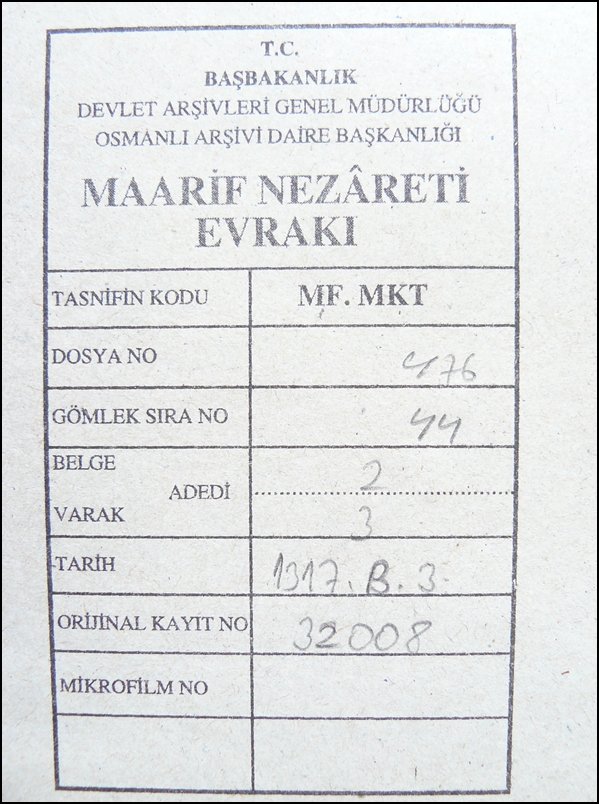 T.C.
BAŞBAKANLIK
DEVLET ARŞİVLERİ GENEL MÜDÜRLÜĞÜ
OSMANLI ARŞİVİ DAİRE BAŞKANLIĞI
MAARİF NEZÂRETİ
EVRAKI
TASNİFİN KODU MF. MKT
DOSYA NO 476
GÖMLEK SIRA NO 44
BELGE 2
ADEDİ
VARAK 3
TARİH 1317. B. 3.
ORİJİNAL KAYIT NO 32008
MİKROFİLM NO